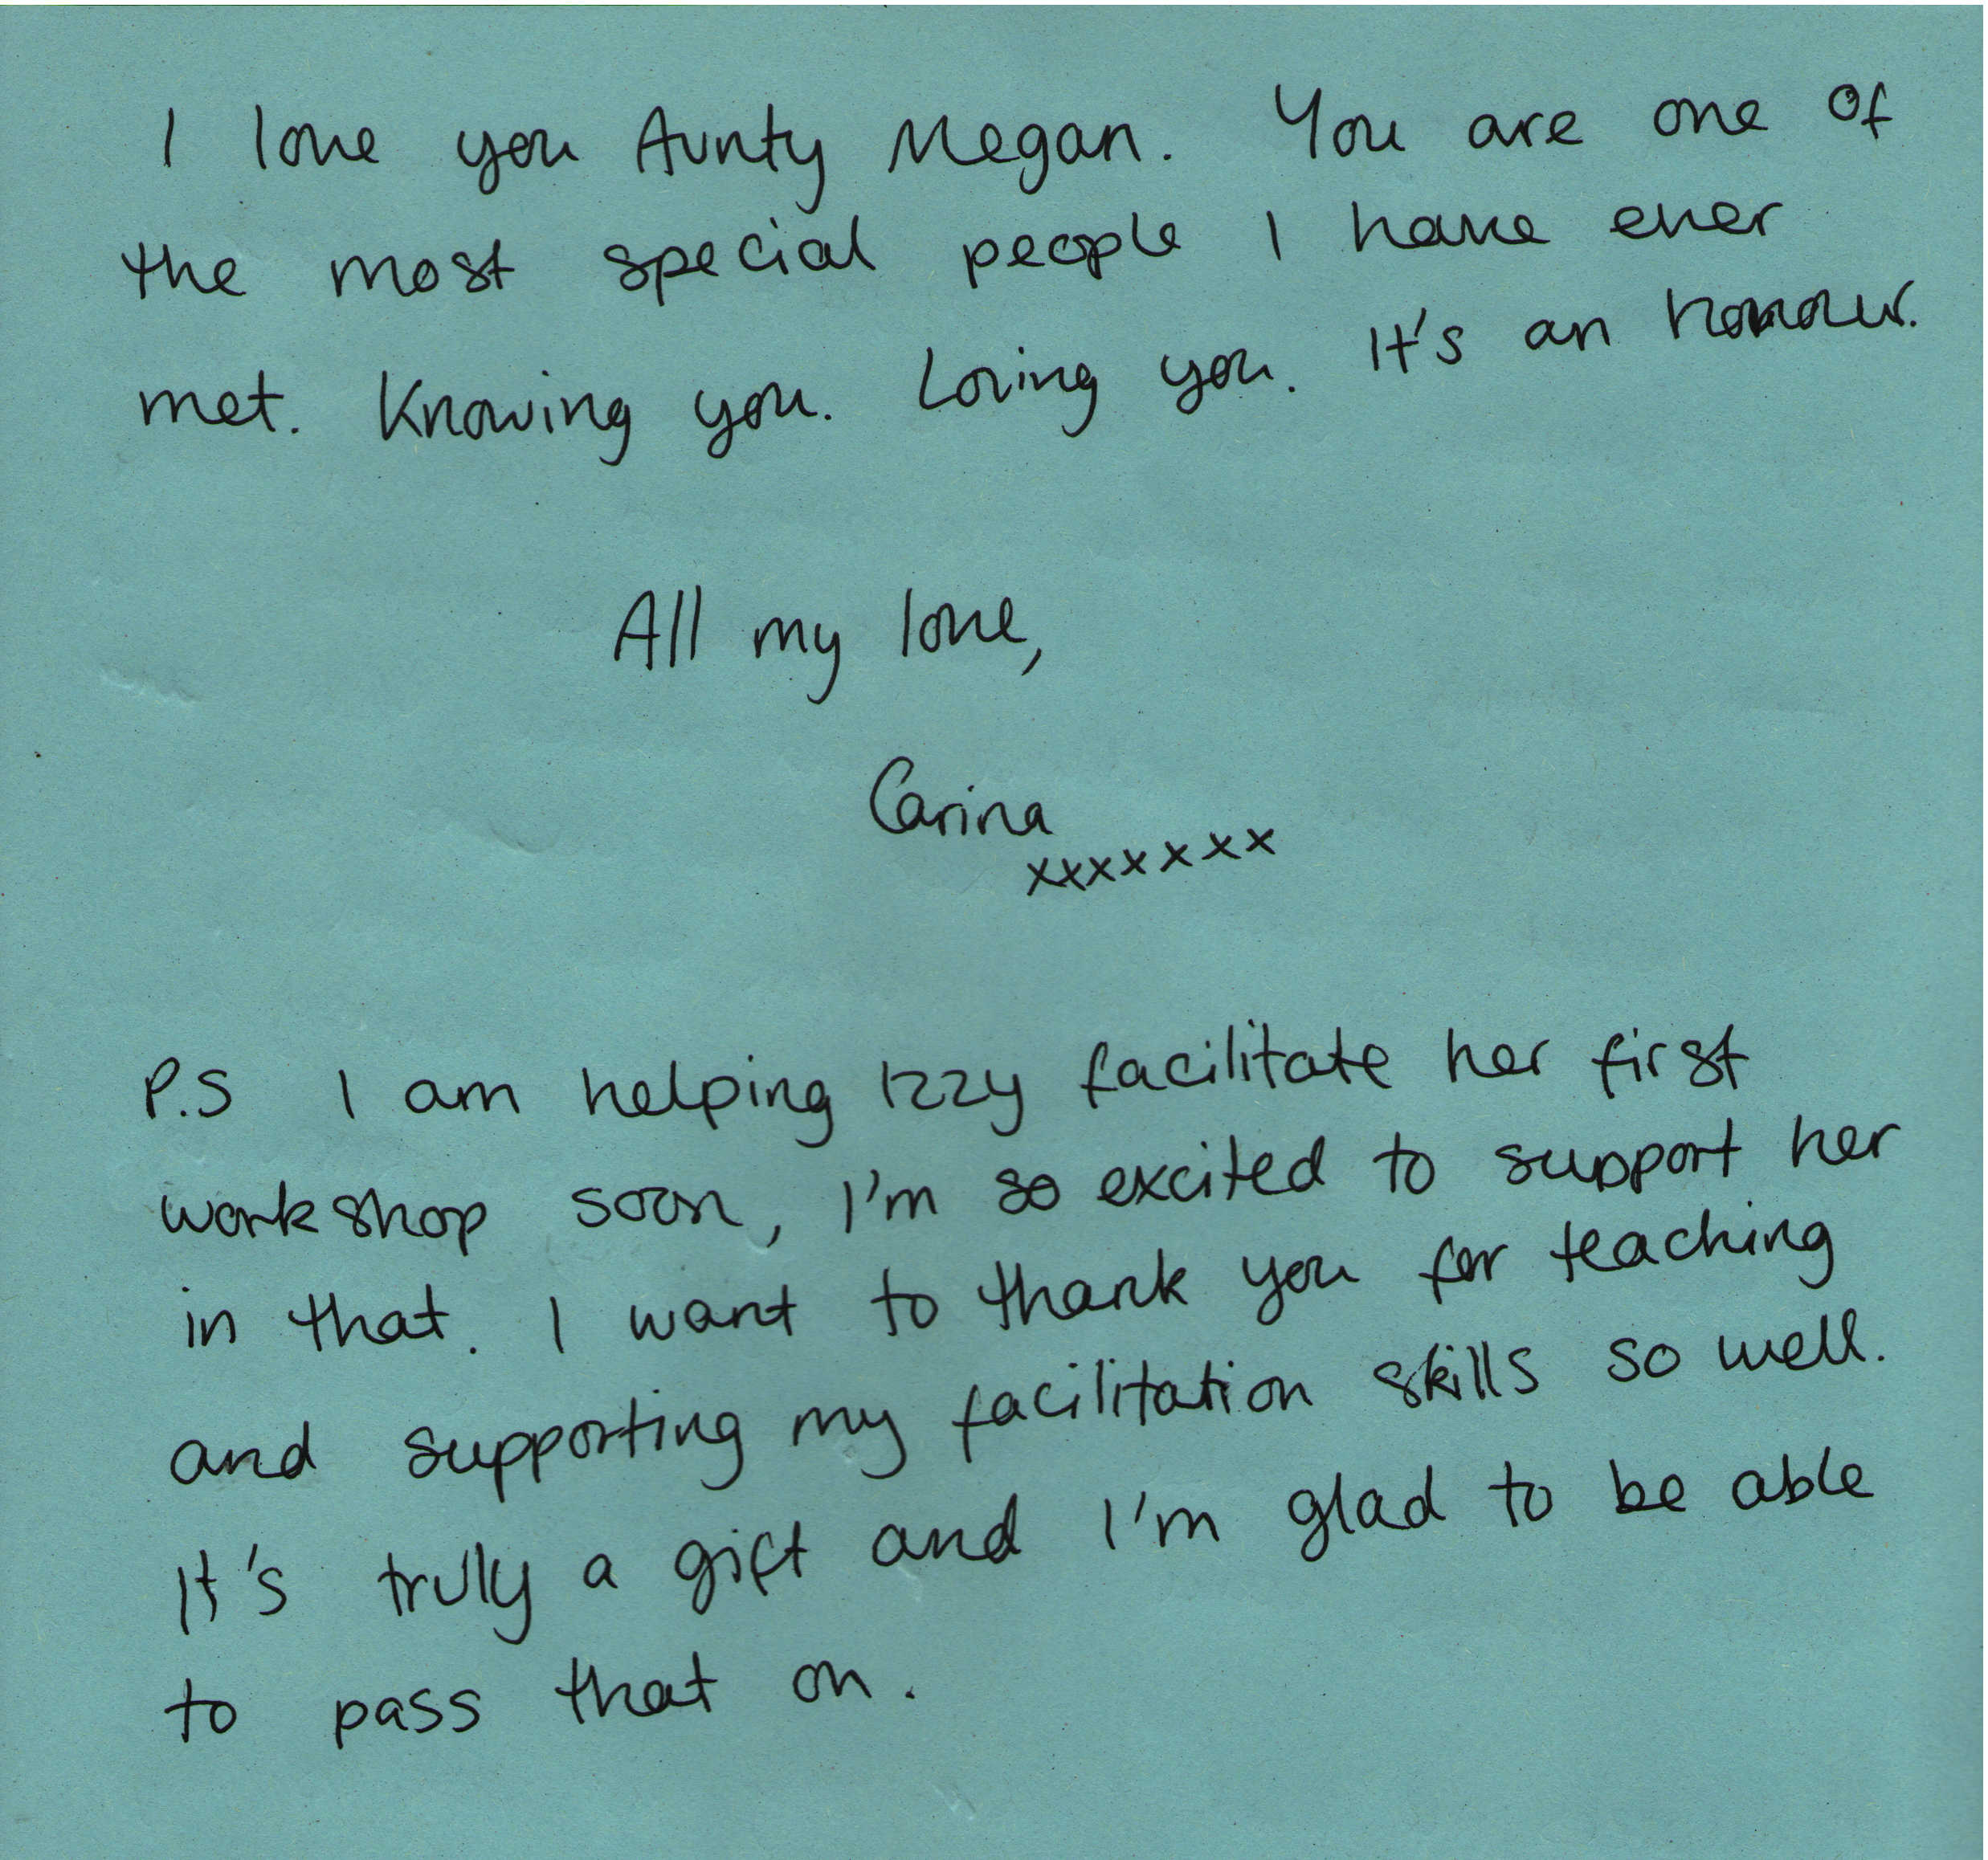 I love you Aunty Megan. You are one of
the most special people I have ever
met. Knowing you. Loving you. It's an honour.
All my love,
Carina
xxxxxxxx
P.S I am helping Izzy facilitate her first
workshop soon, I'm so excited to support her
in that. I want to thank you for teaching
and supporting my facilitation skills so well.
It's truly a gift and I'm glad to be able
to pass that on.